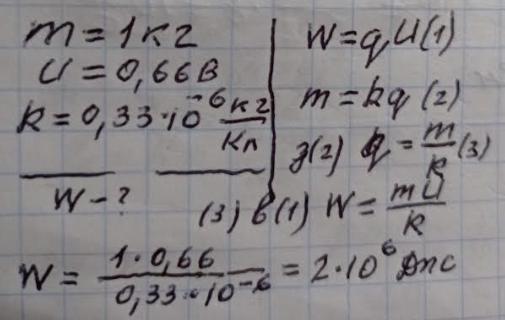 m = 1 кг
U = 0,66 В
k = 0,33·10⁻⁶ кг/Кл
W - ?
W = qU (1)
m = kq (2)
з (2) q = m/k (3)
(3) в (1) W = mU/k
W = 1·0,66 / 0,33·10⁻⁶ = 2·10⁶ Дж